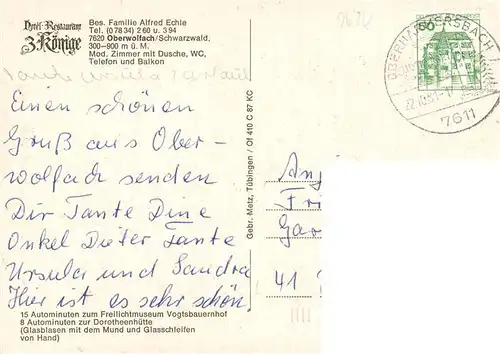 Hotel-Restaurant
3 Könige
Bes. Familie Alfred Echle
Tel. (07834) 260 u. 394
7620 Oberwolfach/Schwarzwald,
300–900 m ü. M.
Mod. Zimmer mit Dusche, WC,
Telefon und Balkon
Tante Ursula
Einen schönen
Gruß aus Ober-
wolfach senden
Dir Tante Dine
Onkel Dieter Tante
Ursula und Sandra
Hier ist es sehr schön.
15 Autominuten zum Freilichtmuseum Vogtsbauernhof
8 Autominuten zur Dorotheenhütte
(Glasblasen mit dem Mund und Glasschleifen
von Hand)
Gebr. Metz, Tübingen / Of 410 C 87 KC
60
OBERHARMERSBACH
7611
An
Gar
41